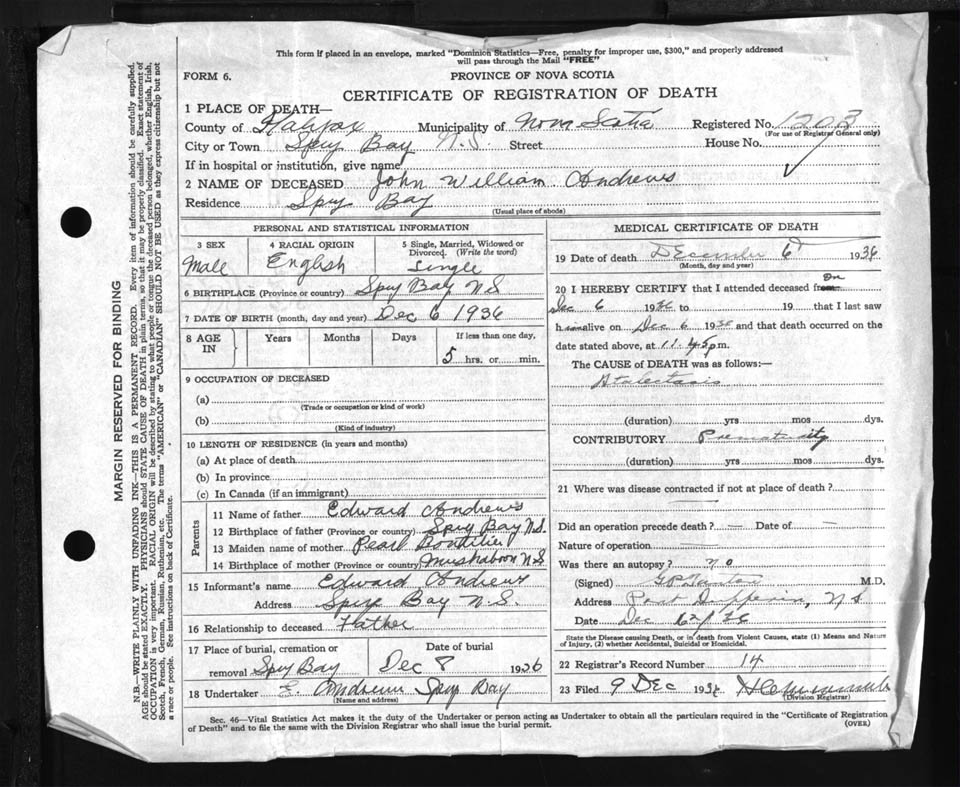 This form if placed in an envelope, marked "Dominion Statistics—Free, penalty for improper use, $300," and properly addressed
will pass through the Mail "FREE"
FORM 6.
PROVINCE OF NOVA SCOTIA
CERTIFICATE OF REGISTRATION OF DEATH
1 PLACE OF DEATH—
County of Halifax Municipality of Nova Scotia Registered No. 1203
(For use of Registrar General only)
City or Town Spry Bay N.S. Street House No.
If in hospital or institution, give name
2 NAME OF DECEASED John William Andrews
Residence Spry Bay
(Usual place of abode)
PERSONAL AND STATISTICAL INFORMATION
3 SEX 4 RACIAL ORIGIN 5 Single, Married, Widowed or
Divorced. (Write the word)
Male English Single
6 BIRTHPLACE (Province or country) Spry Bay N.S
7 DATE OF BIRTH (month, day and year) Dec 6 1936
8 AGE IN Years Months Days If less than one day,
5 hrs. or min.
9 OCCUPATION OF DECEASED
(a)
(Trade or occupation or kind of work)
(b)
(Kind of industry)
10 LENGTH OF RESIDENCE (in years and months)
(a) At place of death
(b) In province
(c) In Canada (if an immigrant)
Parents
11 Name of father Edward Andrews
12 Birthplace of father (Province or country) Spry Bay N.S.
13 Maiden name of mother Pearl Boutilier
14 Birthplace of mother (Province or country) Mushaboon N S
15 Informant's name Edward Andrews
Address Spry Bay N.S.
16 Relationship to deceased Father
17 Place of burial, cremation or Date of burial
removal Spry Bay Dec 8 1936
18 Undertaker E. Andrews Spry Bay
(Name and address)
MEDICAL CERTIFICATE OF DEATH
19 Date of death December 6 1936
(Month, day and year)
20 I HEREBY CERTIFY that I attended deceased from on
Dec 6 1936 to 19 that I last saw
h alive on Dec 6 1936 and that death occurred on
date stated above, at 11.45 p m.
The CAUSE OF DEATH was as follows:—
Atalectasis
(duration) yrs mos dys.
CONTRIBUTORY Prematurity
(duration) yrs mos dys.
21 Where was disease contracted if not at place of death?
Did an operation precede death? — Date of —
Nature of operation —
Was there an autopsy? no
(Signed) M.D.
Address Port Dufferin, N.S
Date Dec /36
State the Disease causing Death, or in death from Violent Causes, state (1) Means and Nature
of Injury, (2) whether Accidental, Suicidal or Homicidal.
22 Registrar's Record Number 14
23 Filed 9 Dec 1936
(Division Registrar)
Sec. 46—Vital Statistics Act makes it the duty of the Undertaker or person acting as Undertaker to obtain all the particulars required in the "Certificate of Registration
of Death" and to file the same with the Division Registrar who shall issue the burial permit.
(OVER)
MARGIN RESERVED FOR BINDING
N.B.—WRITE PLAINLY WITH UNFADING INK—THIS IS A PERMANENT RECORD. Every item of information should be carefully supplied.
AGE should be stated EXACTLY. PHYSICIANS should STATE CAUSE OF DEATH in plain terms, so that it may be properly classified. Exact statement of
OCCUPATION is very important. RACIAL ORIGIN will be described by stating to what people or tongue the deceased person belonged, whether English, Irish,
Scotch, French, German, Russian, Ruthenian, etc. The terms "AMERICAN" or "CANADIAN" SHOULD NOT BE USED as they express citizenship but not
a race or people. See instructions on back of Certificate.